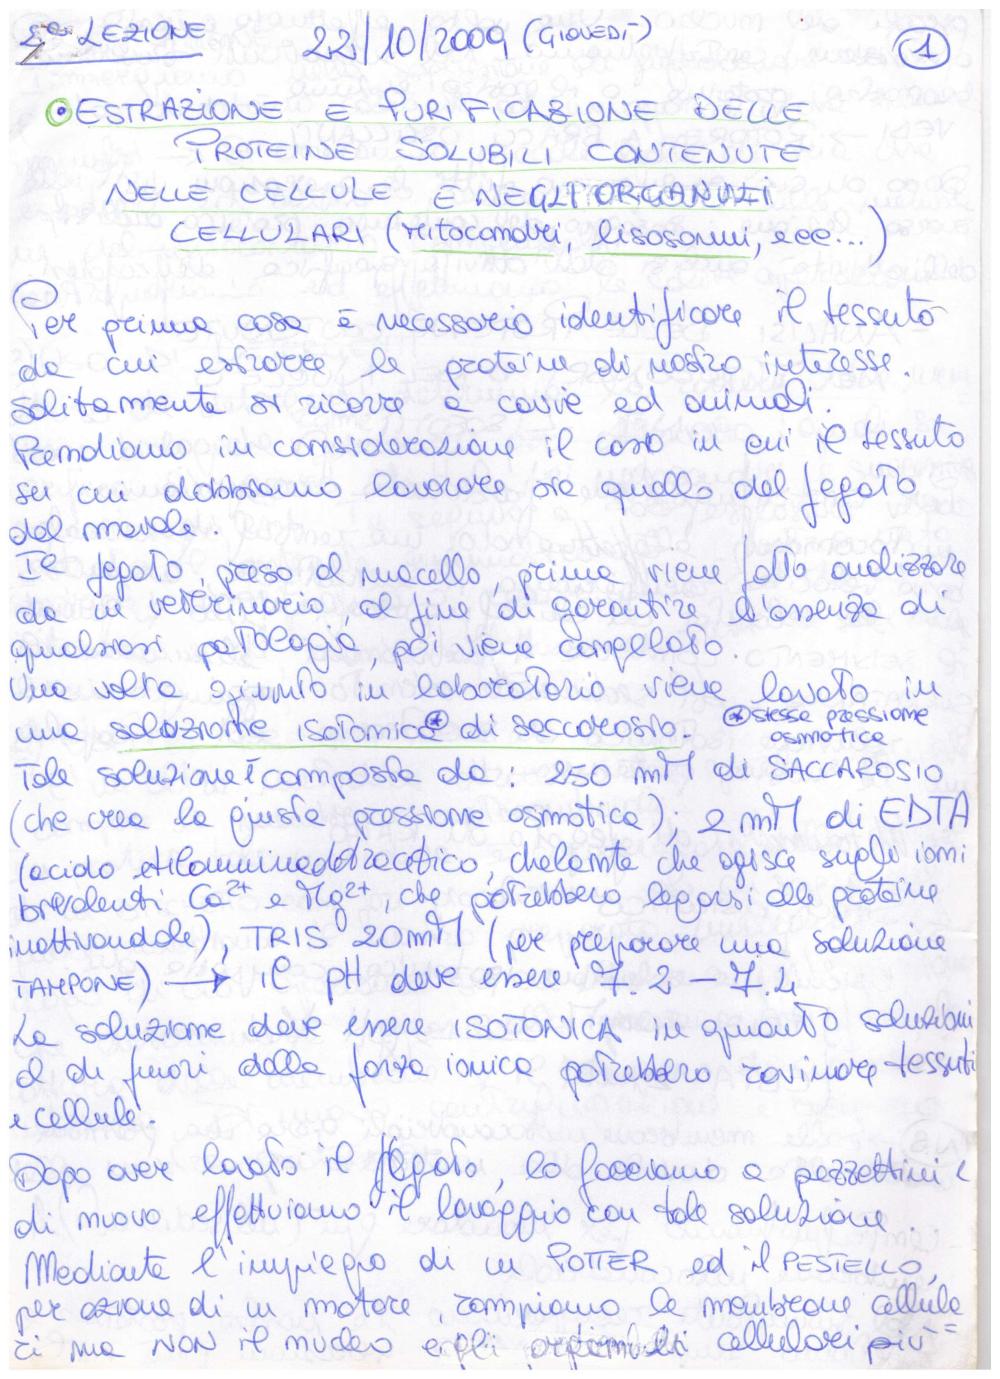 2° LEZIONE 22/10/2009 (GIOVEDI') 1
ESTRAZIONE E PURIFICAZIONE DELLE
PROTEINE SOLUBILI CONTENUTE
NELLE CELLULE E NEGLI ORGANULI
CELLULARI (mitocondri, lisosomi, ecc...)
Per prima cosa è necessario identificare il tessuto
da cui estrarre le proteine di nostro interesse.
Solitamente si ricorre a cavie ed animali.
Prendiamo in considerazione il caso in cui il tessuto
su cui dobbiamo lavorare sia quello del fegato
del maiale.
Il fegato, preso al macello, prima viene fatto analizzare
da un veterinario, al fine di garantire l'assenza di
qualsiasi patologia, poi viene congelato.
Una volta giunto in laboratorio viene lavato in
una soluzione isotonica* di saccarosio. *stessa pressione
osmotica
Tale soluzione è composta da: 250 mM di SACCAROSIO
(che crea la giusta pressione osmotica); 2 mM di EDTA
(acido etilendiamminotetracetico, chelante che agisce sugli ioni
bivalenti Ca2+ e Mg2+, che potrebbero legarsi alle proteine
inattivandole), TRIS 20mM (per preparare una soluzione
TAMPONE). → il pH deve essere 7.2 - 7.4
La soluzione deve essere ISOTONICA in quanto soluzioni
al di fuori della forza ionica potrebbero rovinare tessuti
e cellule.
Dopo aver lavato il fegato, lo facciamo a pezzettini e
di nuovo effettuiamo il lavaggio con tale soluzione.
Mediante l'impiego di un POTTER ed il PESTELLO,
per azione di un motore, rompiamo le membrane cellula=
ri ma NON il nucleo e gli organuli cellulari più